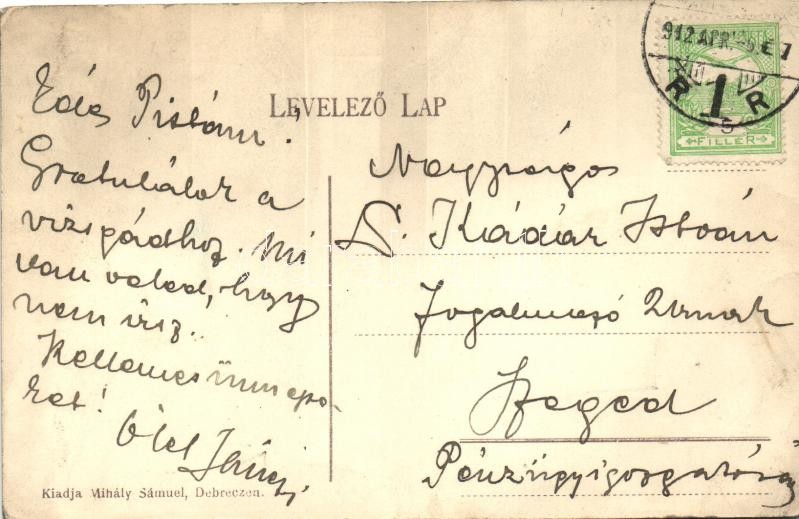 LEVELEZŐ LAP
Édes Pistám!
Gratulálok a
vizsgádhoz. Mi
van veled, hogy
nem írsz.
Kellemes ünnepe-
ket!
Ölel Jancsi
Kiadja Mihály Sámuel, Debreczen.
912 ÁPR.
R 1 R
5
FILLÉR
Nagyságos
Kádár István
Fogalmazó Urnak
Szeged
Pénzügyigazgatóság